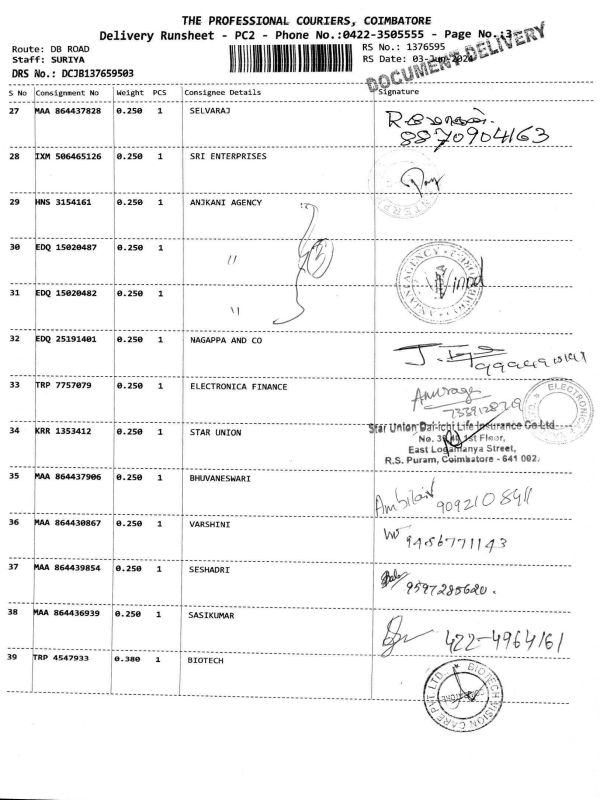 THE PROFESSIONAL COURIERS, COIMBATORE
Delivery Runsheet - PC2 - Phone No.:0422-3505555 - Page No.:3
Route: DB ROAD
RS No.: 1376595
Staff: SURIYA
RS Date: 03-Jun-2024
DOCUMENT DELIVERY
DRS No.: DCJB137659503
S No Consignment No Weight PCS Consignee Details Signature
27 MAA 864437828 0.250 1 SELVARAJ
8870904163
28 IXM 506465126 0.250 1 SRI ENTERPRISES
29 HNS 3154161 0.250 1 ANJKANI AGENCY
30 EDQ 15020487 0.250 1 "
31 EDQ 15020482 0.250 1 "
32 EDQ 25191401 0.250 1 NAGAPPA AND CO
33 TRP 7757079 0.250 1 ELECTRONICA FINANCE
Anurage
ELECTRONICA
34 KRR 1353412 0.250 1 STAR UNION
Star Union Dai-ichi Life Insurance Co Ltd
1st Floor,
East Logamanya Street,
R.S. Puram, Coimbatore - 641 002.
35 MAA 864437906 0.250 1 BHUVANESWARI
9092108411
36 MAA 864430867 0.250 1 VARSHINI
9486771143
37 MAA 864439854 0.250 1 SESHADRI
9597285620.
38 MAA 864436939 0.250 1 SASIKUMAR
422-4964161
39 TRP 4547933 0.380 1 BIOTECH
BIOTECH VISION CARE PVT LTD